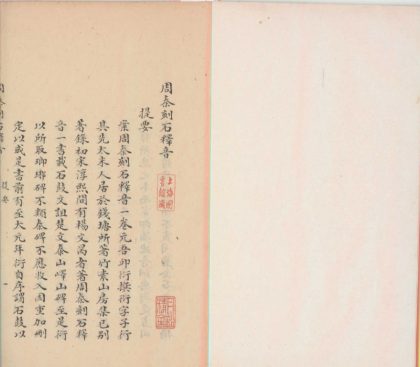 周秦刻石釋音
提要
案周秦刻石釋音一卷元吾邱衍撰衍字子行
其先太末人居於錢塘所著竹素山房集已別
著錄初宋淳熙間有楊文昺者著周秦刻石釋
音一書載石鼓文詛楚文泰山嶧山碑至是衍
以所取瑯琊碑不類秦碑不應收入因重加刪
定以成是書前有至大元年衍自序謂石鼓以
提要